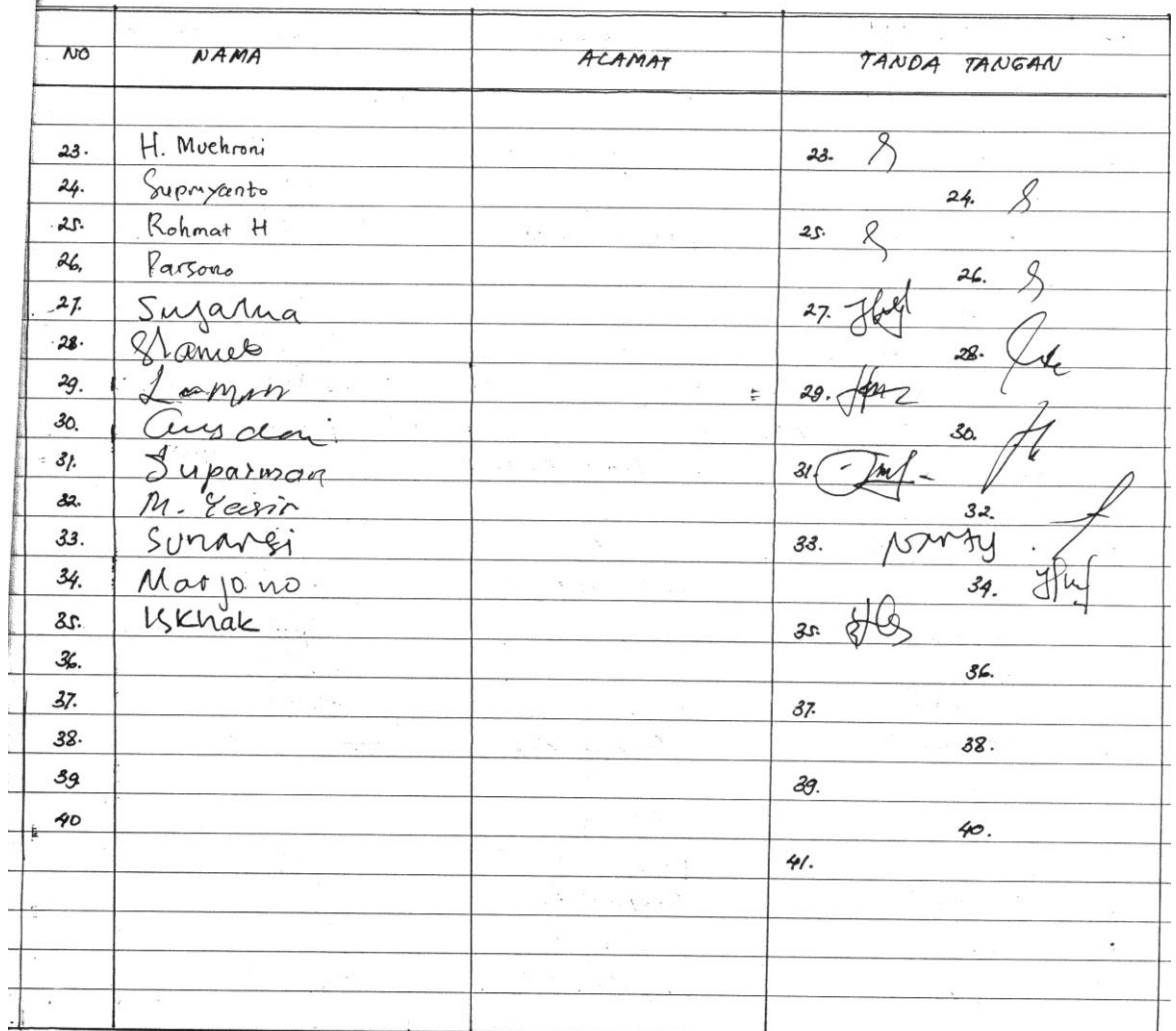 NO NAMA ALAMAT TANDA TANGAN
23. H. Muchroni 23.
24. Supriyanto 24.
25. Rohmat H 25.
26. Parsono 26.
27. 27.
28. Slamet 28.
29. 29.
30. 30.
31. Suparman 31.
32. M. Yasir 32.
33. Sunarsi 33.
34. Marjono 34.
35. Iskhak 35.
36. 36.
37. 37.
38. 38.
39. 39.
40 40.
41.